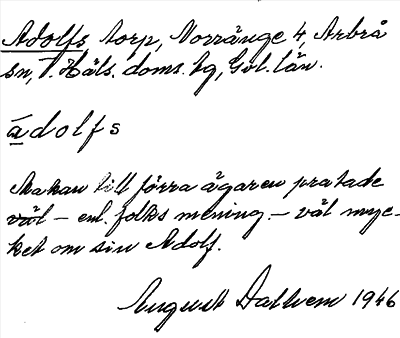 Adolfs torp, Norränge 4, Arbrå
sn, V. Häls. doms. hg, Gvl. län.
ādolfs
Makan till förra ägaren pratade
väl – enl. folks mening – väl myc-
ket om sin Adolf.
August Dalhem 1946